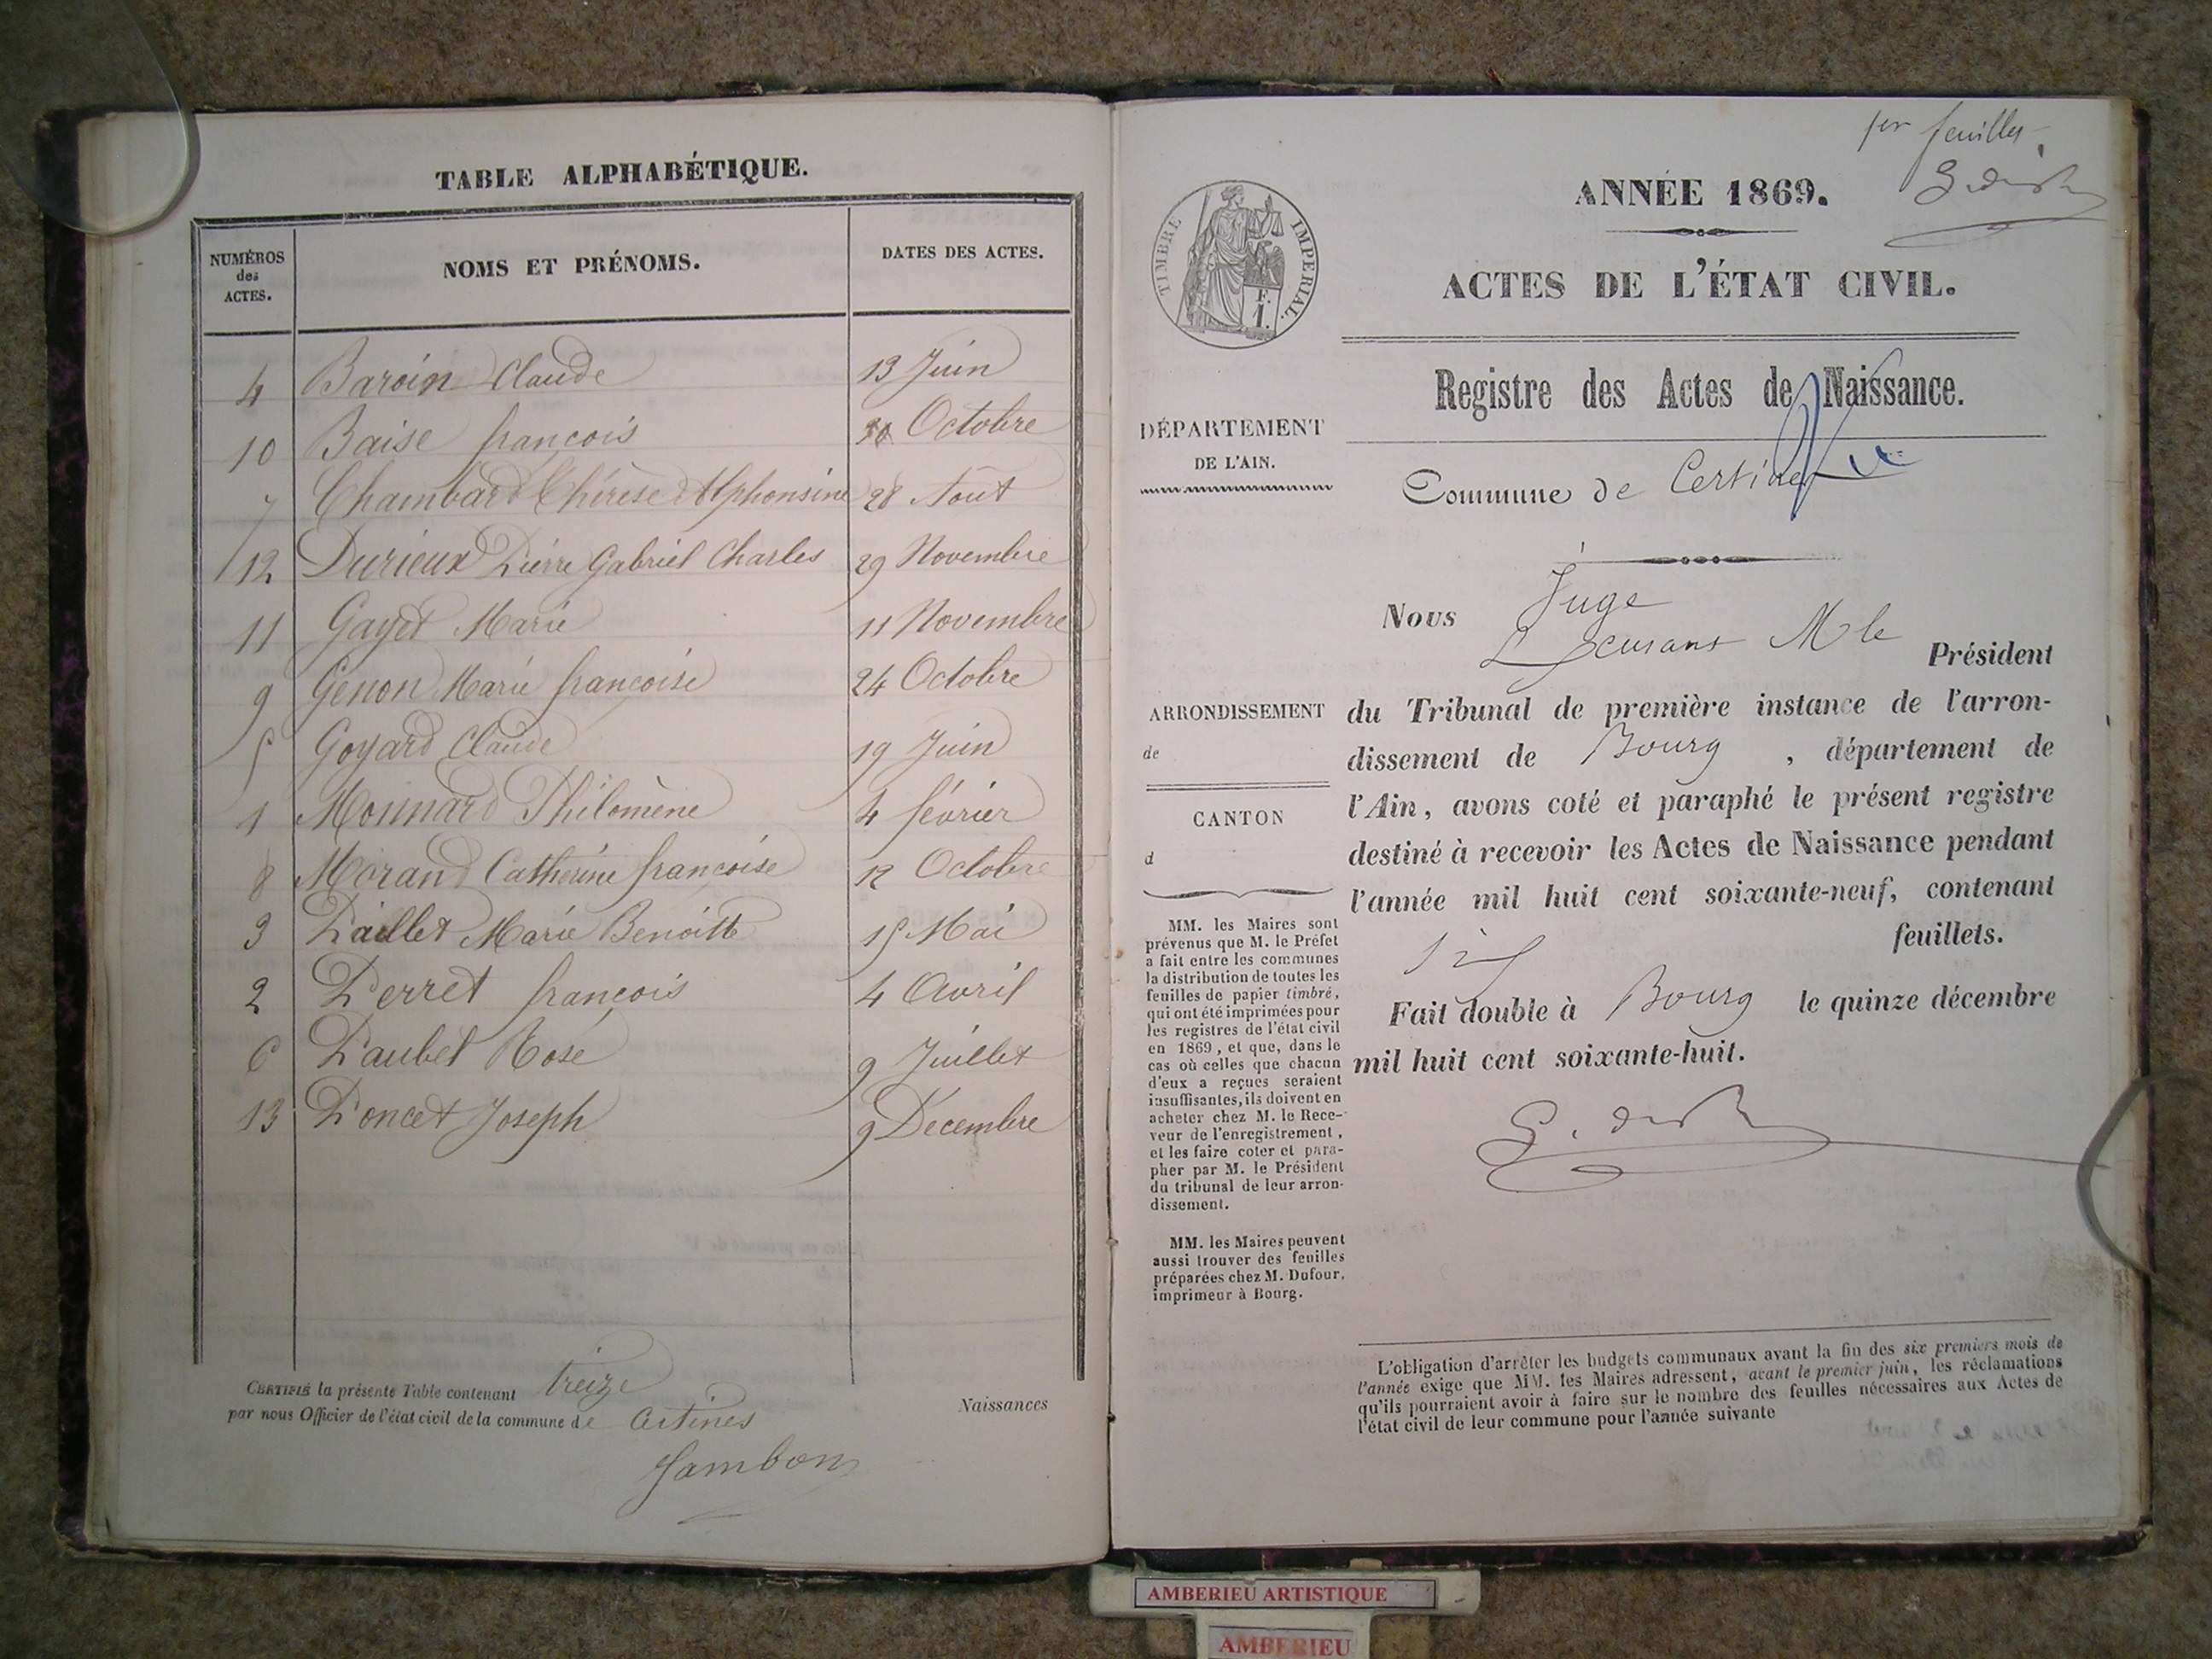 TABLE ALPHABÉTIQUE.
NUMÉROS
des
ACTES.
NOMS ET PRÉNOMS.
DATES DES ACTES.
4 Baroin Claude 13 Juin
10 Baise françois 30 Octobre
7 Chambard Thérèse Alphonsine 28 Aout
12 Durieux Pierre Gabriel Charles 29 Novembre
11 Gayet Marie 11 Novembre
9 Genon Marie françoise 24 Octobre
5 Goyard Claude 19 Juin
1 Monnard Philomène 4 février
8 Morand Catherine françoise 12 Octobre
3 Paillet Marie Benoitte 15 Mai
2 Perret françois 4 Avril
6 Paubel Rose 9 Juillet
13 Poncet Joseph 9 Décembre
CERTIFIÉ la présente Table contenant treize Naissances
par nous Officier de l'état civil de la commune de Certines
Jambon
1er feuillet
ANNÉE 1869.
TIMBRE IMPERIAL.
F.
1.
ACTES DE L'ÉTAT CIVIL.
Registre des Actes de Naissance.
DÉPARTEMENT
DE L'AIN.
Commune de Certines
Nous Juge
Mr le Président
ARRONDISSEMENT
de
CANTON
d
du Tribunal de première instance de l'arron-
dissement de Bourg, département de
l'Ain, avons coté et paraphé le présent registre
destiné à recevoir les Actes de Naissance pendant
l'année mil huit cent soixante-neuf, contenant
six feuillets.
Fait double à Bourg le quinze décembre
mil huit cent soixante-huit.
MM. les Maires sont
prévenus que M. le Préfet
a fait entre les communes
la distribution de toutes les
feuilles de papier timbré,
qui ont été imprimées pour
les registres de l'état civil
en 1869, et que, dans le
cas où celles que chacun
d'eux a reçues seraient
insuffisantes, ils doivent en
acheter chez M. le Rece-
veur de l'enregistrement,
et les faire coter et para-
pher par M. le Président
du tribunal de leur arron-
dissement.
MM. les Maires peuvent
aussi trouver des feuilles
préparées chez M. Dufour,
imprimeur à Bourg.
L'obligation d'arrêter les budgets communaux avant la fin des six premiers mois de
l'année exige que MM. les Maires adressent, avant le premier juin, les réclamations
qu'ils pourraient avoir à faire sur le nombre des feuilles nécessaires aux Actes de
l'état civil de leur commune pour l'année suivante
AMBERIEU ARTISTIQUE
AMBERIEU